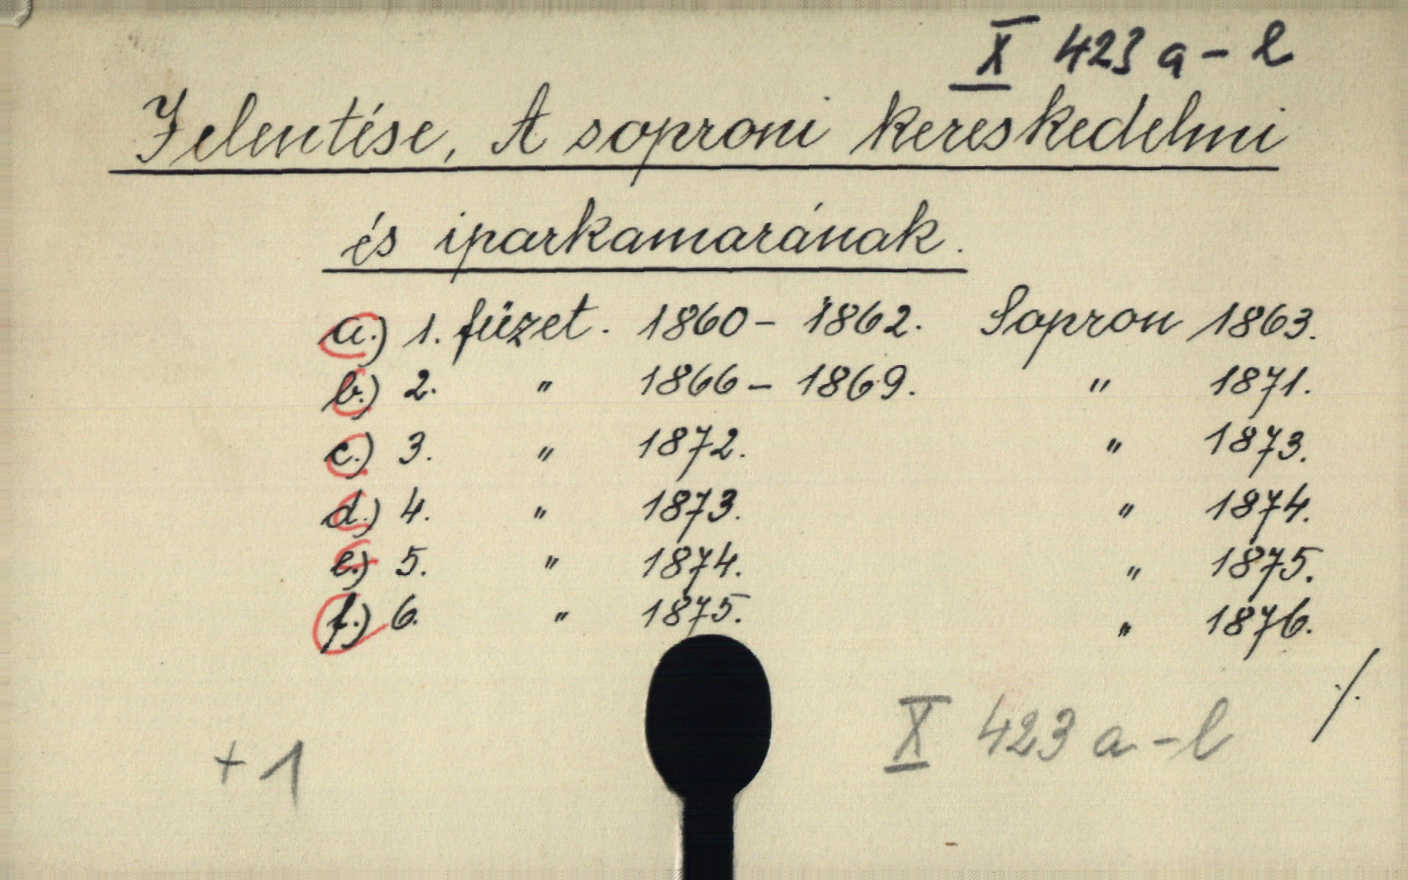 X 423 a - l
Jelentése, A soproni kereskedelmi
és iparkamarának.
a.) 1. füzet. 1860 - 1862. Sopron 1863.
b.) 2. " 1866 - 1869. " 1871.
c.) 3. " 1872. " 1873.
d.) 4. " 1873. " 1874.
e.) 5. " 1874. " 1875.
f.) 6. " 1875. " 1876.
./.
X 423 a - l
+ 1